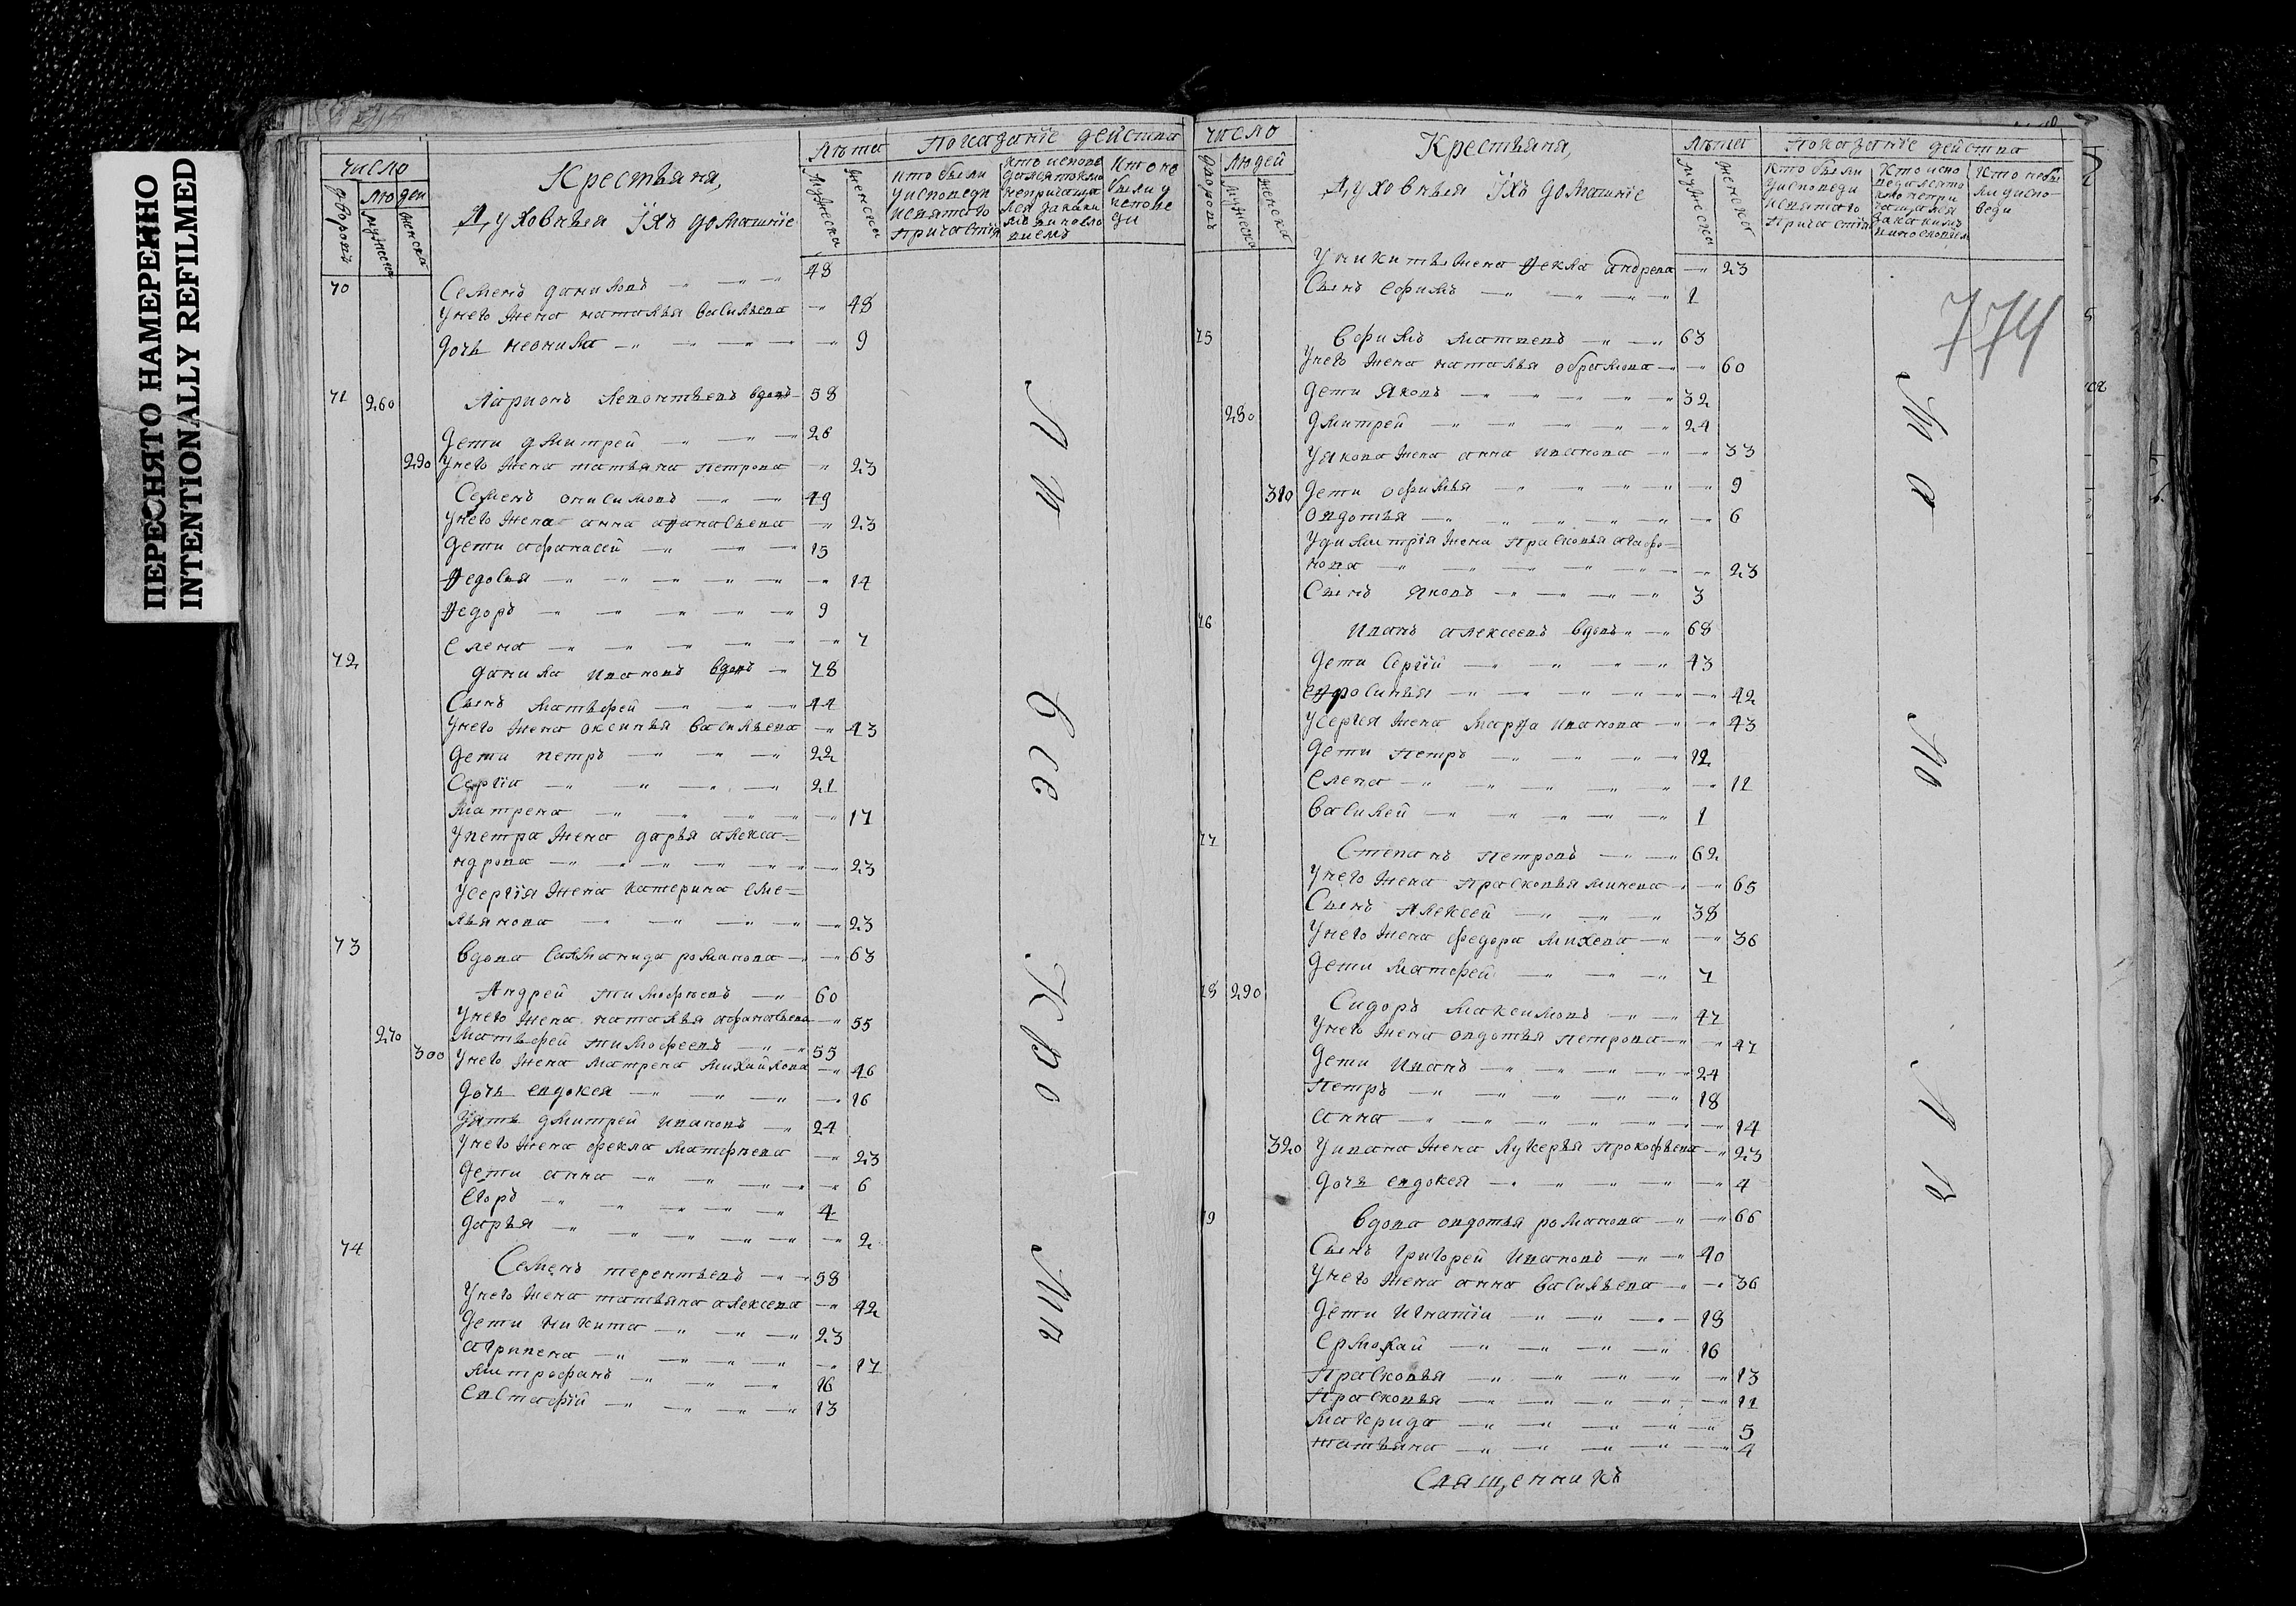 ПЕРЕСНЯТО НАМЕРЕННО
INTENTIONALLY REFILMED
число
дворовъ
людей
мужеска
женска
Крестьяня,
и, духовныя ихъ домашніе
лѣта
мужеска
женска
показаніе действа
кто были
уисповеди
исвятаго
причастія
70 Семенъ даниловъ 48
унего жена наталья васильева 48
дочь неонила 9
71 260 Ларионъ леонтьевъ вдовъ 58
дети дмитрей 26
290 унего жена татьяна петрова 23
Семенъ онисимовъ 49
унего жена анна афанасьева 23
дети афанасей 15
Ѳедосья 14
Ѳедоръ 9
елена 7
72 данила ивановъ вдовъ 78
Сынъ матьвфей 44
унего жена оксинья васильева 43
дети петръ 22
Сергіи 21
матрена 17
упетра жена дарья алекса=
ндрова 23
усергія жена катерина еме=
льянова 23
73 вдова саламанида романова 63
Андрей тимофѣевъ 60
унего жена наталья афанасьева 55
270 матьвфей тимофеевъ 55
300 унего жена матрена михайлова 46
дочь евдокея 16
зять дмитрей ивановъ 24
унего жена фекла матфѣева 23
дети анна 6
егоръ 4
дарья 2
74 Семенъ терентьевъ 58
унего жена татьяна алексева 42
дети никита 23
агрипена 17
митрофанъ 16
евстафій 13
число
дворовъ
людей
мужеска
женска
Крестьяня,
и, духовныя ихъ домашніе
лѣта
мужеска
женска
показаніе действа
кто были
уисповеди
исвятаго
причастія
774
уникиты жена Ѳекла андрева 23
Сынъ ефимъ 1
75 ефимъ матвевъ 63
унего жена наталья обрамова 60
дети яковъ 32
280 дмитрей 24
уякова жена анна иванова 33
310 дети офимья 9
овдотья 6
удимитрія жена прасковья агафо=
нова 23
Сынъ яковъ 3
76 иванъ алексеевъ вдовъ 68
дети Сергій 43
ефросинья 42
усергія жена марѳа иванова 43
дети петръ 12
елена 11
василей 1
77 Степанъ петровъ 62
унего жена прасковья минева 65
Сынъ алексей 38
унего жена федора михева 36
дети матфей 7
78 290 Сидоръ максимовъ 47
унего жена овдотья петрова 47
дети иванъ 24
петръ 18
анна 14
320 уивана жена лукерья прокофьева 23
дочь евдокея 4
79 вдова овдотья романова 66
Сынъ григорей ивановъ 40
унего жена анна васильева 36
дети игнатіи 18
ермолай 16
прасковья 13
прасковья 11
макрида 5
татьяна 4
Священникъ